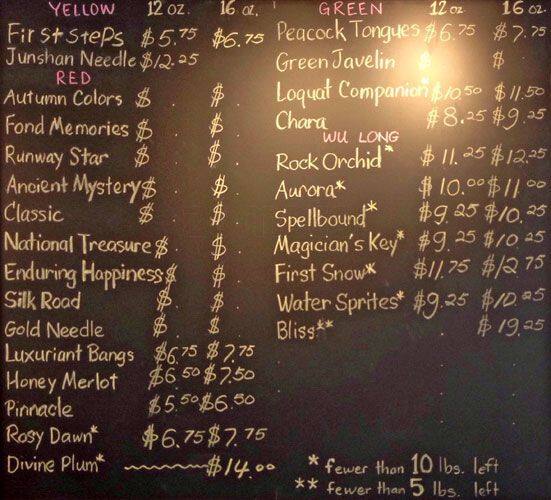 YELLOW 12 oz. 16 oz.
First Steps $5.75 $6.75
Junshan Needle $12.25
RED
Autumn Colors $ . $ .
Fond Memories $ . $ .
Runway Star $ . $ .
Ancient Mystery $ . $ .
Classic $ . $ .
National Treasure $ . $ .
Enduring Happiness $ . $ .
Silk Road $ . $ .
Gold Needle $ . $ .
Luxuriant Bangs $6.75 $7.75
Honey Merlot $6.50 $7.50
Pinnacle $5.50 $6.50
Rosy Dawn* $6.75 $7.75
Divine Plum* $14.00
GREEN 12 oz. 16 oz.
Peacock Tongues $6.75 $7.75
Green Javelin $ $
Loquat Companion* $10.50 $11.50
Chara $8.25 $9.25
WU LONG
Rock Orchid* $11.25 $12.25
Aurora* $10.00 $11.00
Spellbound* $9.25 $10.25
Magician's Key* $9.25 $10.25
First Snow* $11.75 $12.75
Water Sprites* $9.25 $10.25
Bliss** $19.25
* fewer than 10 lbs. left
** fewer than 5 lbs. left